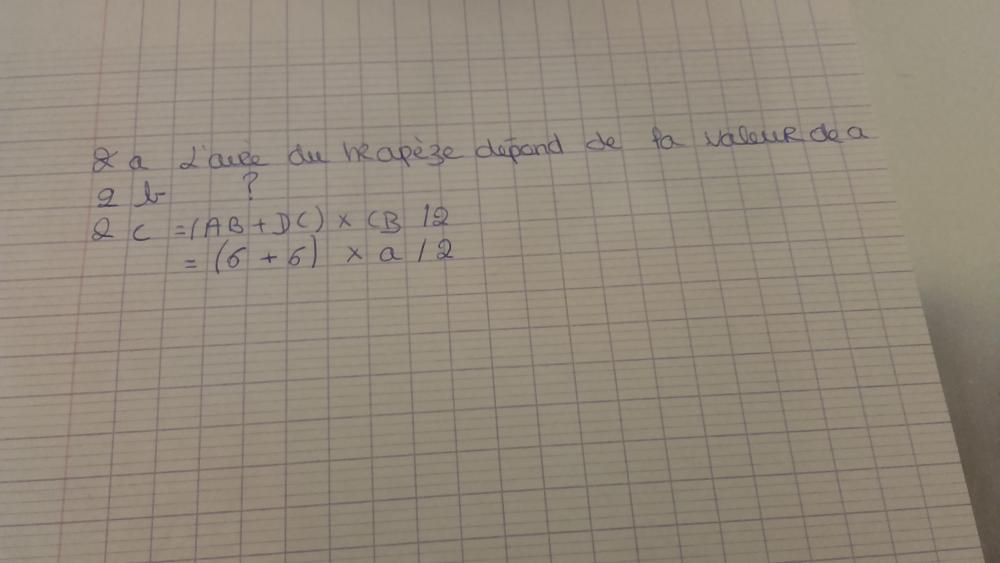 2 a L'aire du trapèze dépend de la valeur de a
2 b ?
2 c = (AB + DC) × CB / 2
= (6 + 6) × a / 2